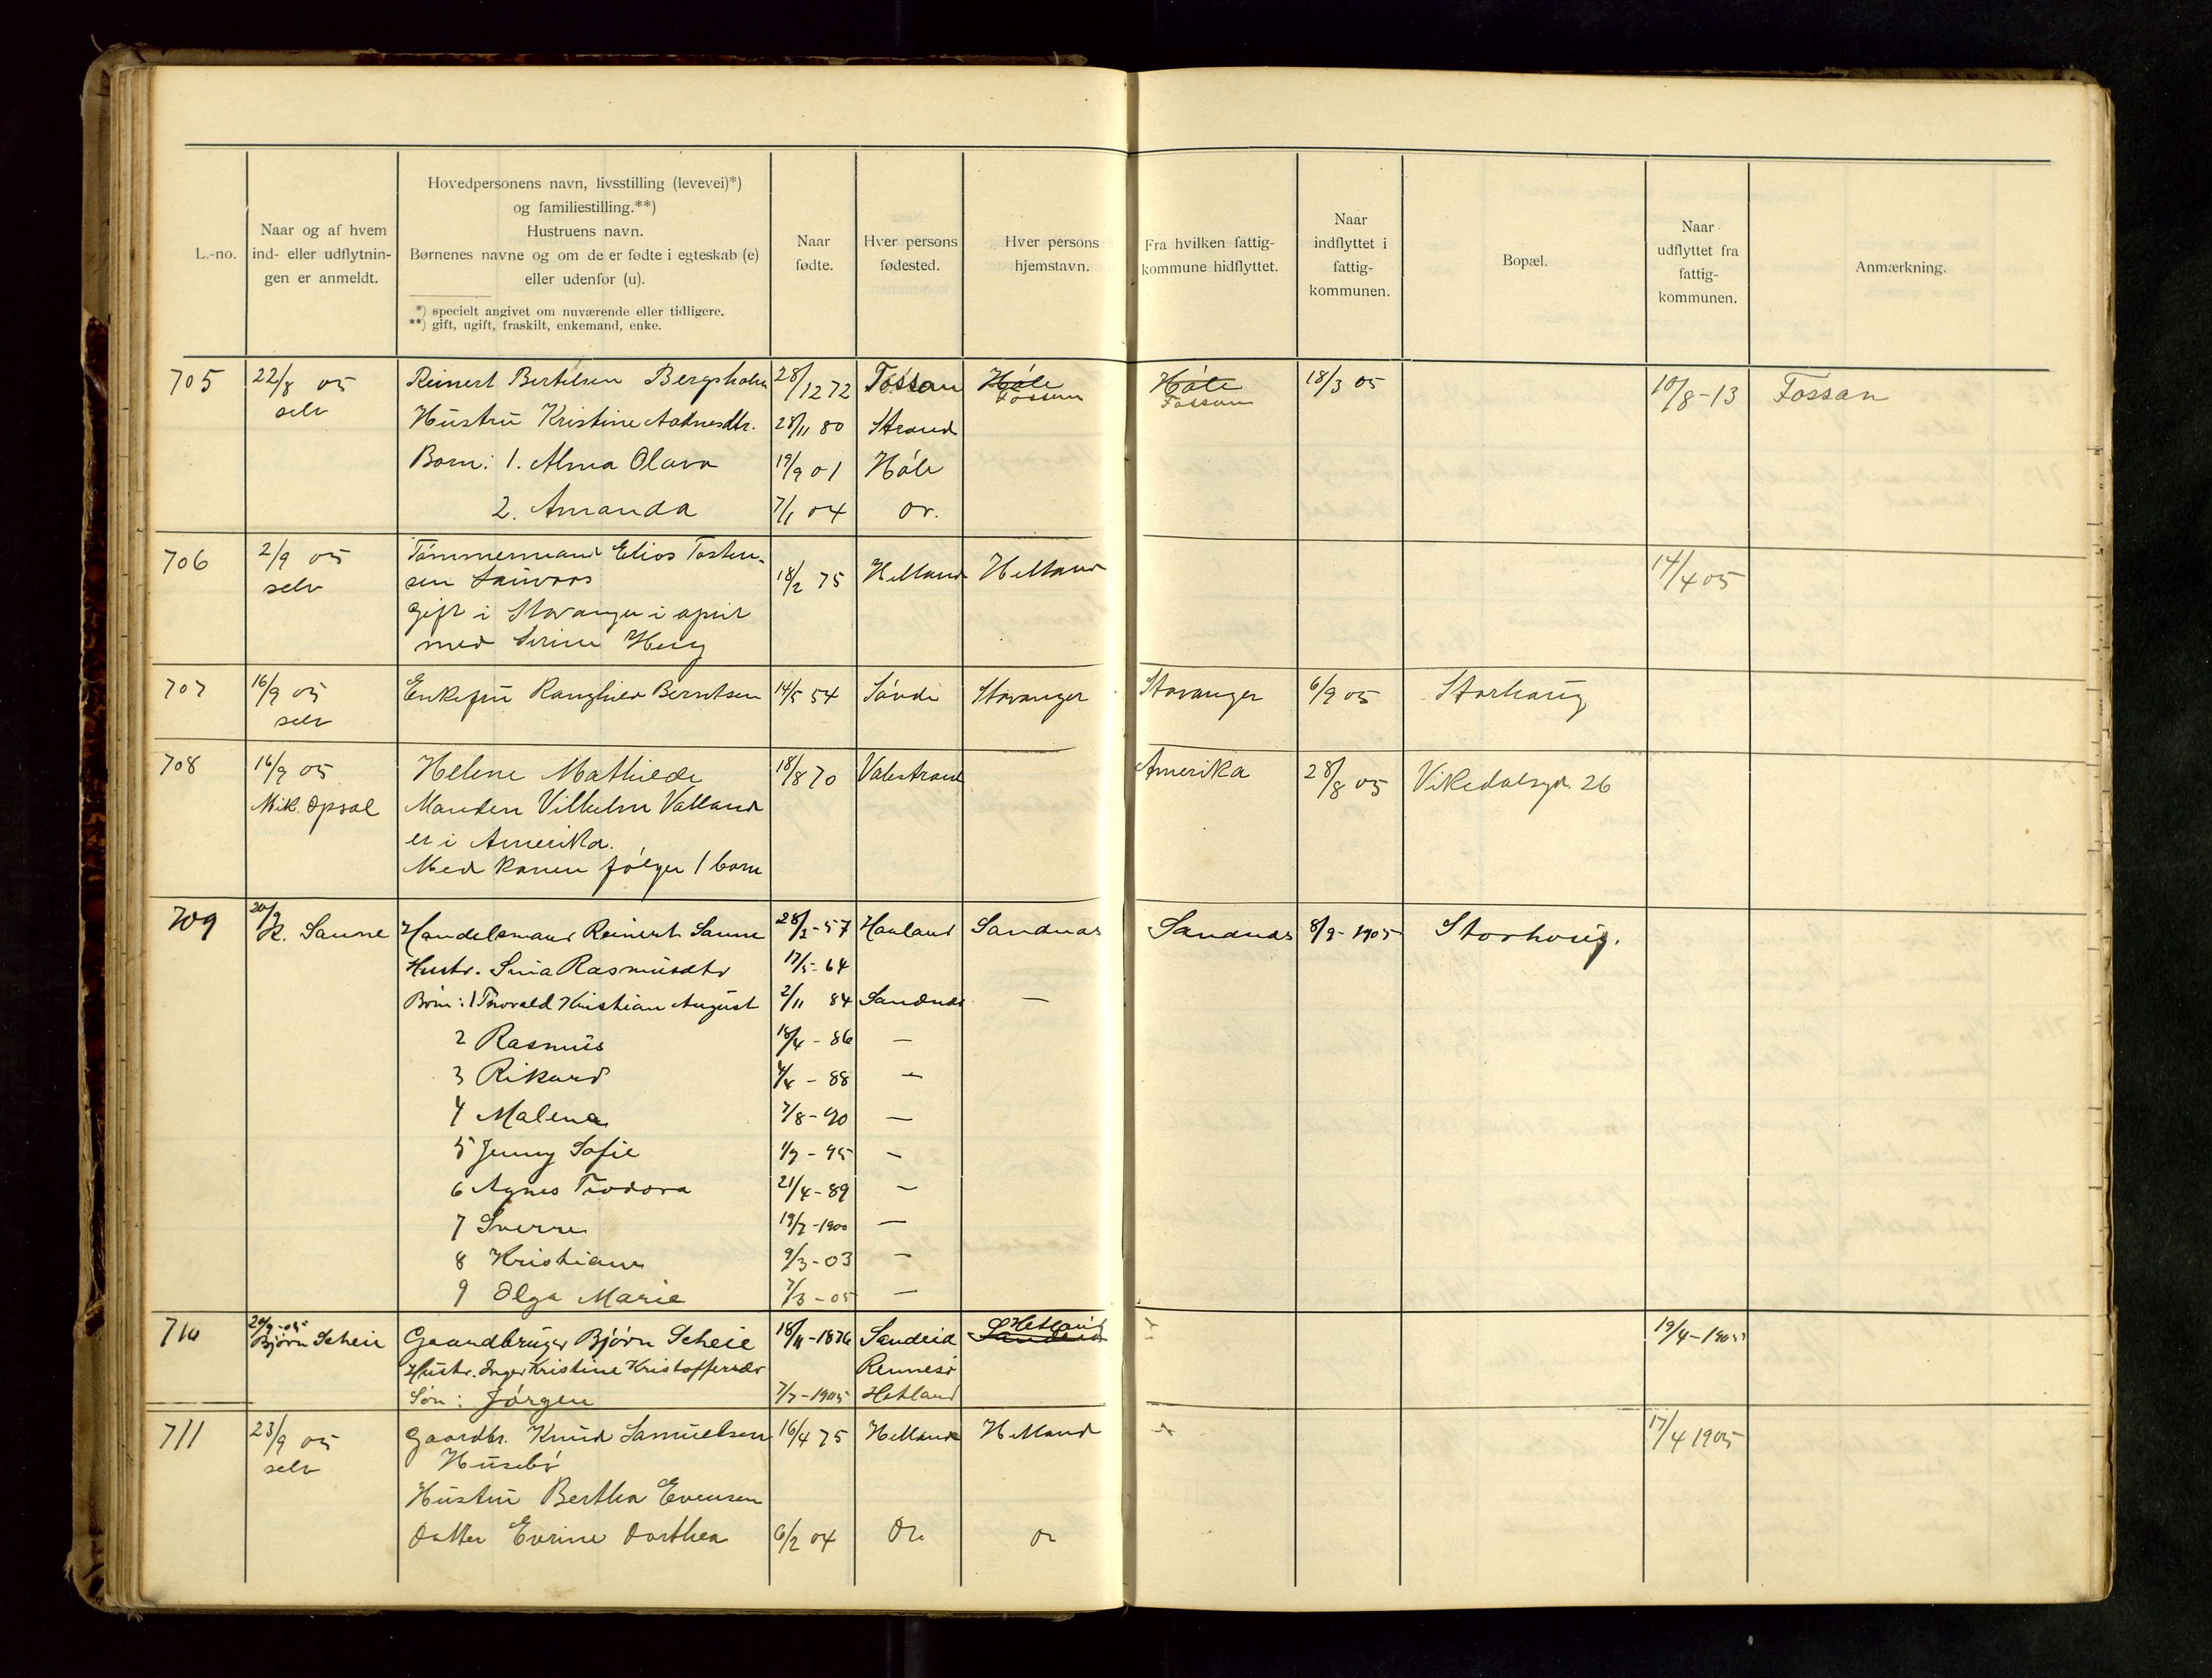 L.-no.
Naar og af hvem
ind- eller udflytnin-
gen er anmeldt.
Hovedpersonens navn, livsstilling (levevei)*)
og familiestilling.**)
Hustruens navn.
Børnenes navne og om de er fødte i egteskab (e)
eller udenfor (u).
*) specielt angivet om nuværende eller tidligere.
**) gift, ugift, fraskilt, enkemand, enke.
Naar
fødte.
Hver persons
fødested.
Hver persons
hjemstavn.
Fra hvilken fattig-
kommune hidflyttet.
Naar
indflyttet i
fattig-
kommunen.
Bopæl.
Naar
udflyttet fra
fattig-
kommunen.
Anmærkning.
705 22/8 05 Reinert Bertelsen Bergsholm 28/12 72 Fossan Høle Høle 18/3 05 10/8-13 Fossan
selv Fossan Fossan
Hustru Kristine 28/11 80 Strand
Børn: 1. Alma Olava 19/9 01 Høle
2. Amanda 7/1 04 do.
706 2/9 05 Tømmermand Elias Tosten-
selv sen 18/2 75 Hetland Hetland 14/4 05
gift i Stavanger i april
med Serine Heng
707 16/9 05 Enkefru Ranghild Berntsen 14/5 54 Søvde Stavanger Stavanger 6/9 05 Storhaug
selv
708 16/9 05 Helene Mathilde 18/8 70 Valestrand Amerika 28/8 05 Vikedalsgd. 26
Mik. Opsal Manden Vilhelm Valland
er i Amerika.
Med konen følger 1 barn
709 20/9 R. Saune Handelsmand Reinert Saune 28/2-57 Hauland Sandnæs Sandnæs 8/9-1905 Storhoug.
Hustr. Sina Rasmusdtr 17/5-64
Børn: 1 Thorvald Kristian August 2/11 84 Sandnæs —
2 Rasmus 18/4-86 —
3 Rikard 4/4-88 —
4 Malena 7/8-90 —
5 Jenny Sofie 1/7-95 —
6 Agnes Teodora 21/4-89 —
7 Sverre 19/7-1900 —
8 Kristiane 9/3-03 —
9 Olga Marie 7/3-05 —
710 20/9-05 Hetland
Bjørn Scheie Gaardbruger Bjørn Scheie 18/11-1876 Sandeid Sandeid 19/4-1905
Hustr. Inger Kristine Kristoffersdr Rennesø
Søn: Jørgen 7/7-1905 Hetland
711 23/9 05 Gaardbr. Knud Samuelsen 16/4 75 Hetland Hetland 17/4 1905
selv Husebø
Hustru Bertha Evensen
Datter Evrine Dorthea 6/2 04 do. do